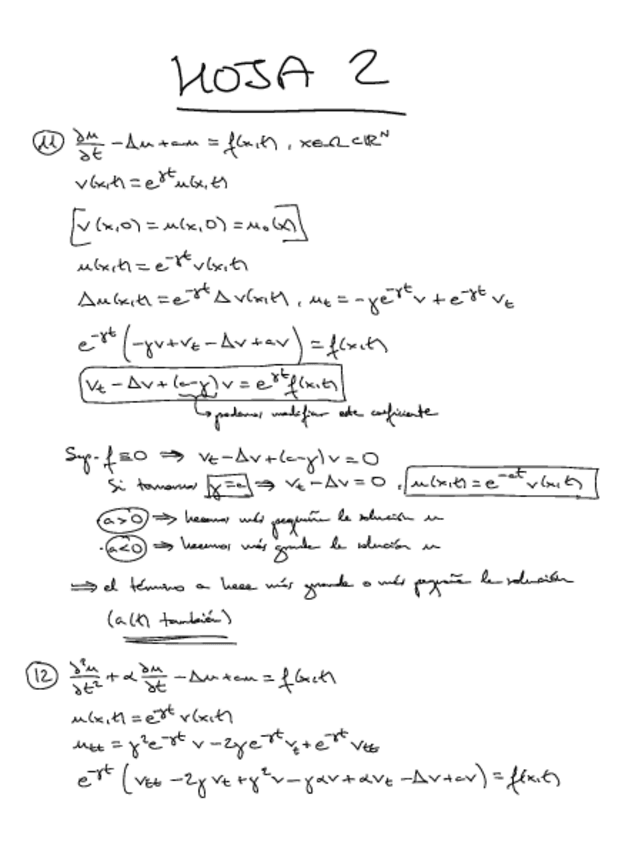 HOJA 2
(11) ∂u/∂t - Δu + au = f(x,t), x∈Ω⊂ℝᴺ
v(x,t) = e^{γt} u(x,t)
[v(x,0) = u(x,0) = u₀(x)]
u(x,t) = e^{-γt} v(x,t)
Δu(x,t) = e^{-γt} Δv(x,t), u_t = -γe^{-γt} v + e^{-γt} v_t
e^{-γt} (-γv + v_t - Δv + av) = f(x,t)
v_t - Δv + (a-γ)v = e^{γt} f(x,t)
↳ podemos modificar este coeficiente
Sup. f≡0 ⇒ v_t - Δv + (a-γ)v = 0
Si tomamos γ=a ⇒ v_t - Δv = 0, u(x,t) = e^{-at} v(x,t)
a>0 ⇒ hacemos más pequeña la solución u
· a<0 ⇒ hacemos más grande la solución u
⇒ el término a hace más grande o más pequeña la solución
(a(t) también)
(12) ∂²u/∂t² + α ∂u/∂t - Δu + au = f(x,t)
u(x,t) = e^{-γt} v(x,t)
u_tt = γ²e^{-γt} v - 2γe^{-γt} v_t + e^{-γt} v_tt
e^{-γt} (v_tt - 2γv_t + γ²v - γαv + αv_t - Δv + av) = f(x,t)